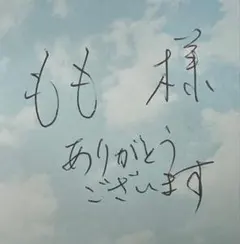 もも 様
ありがとう
ございます